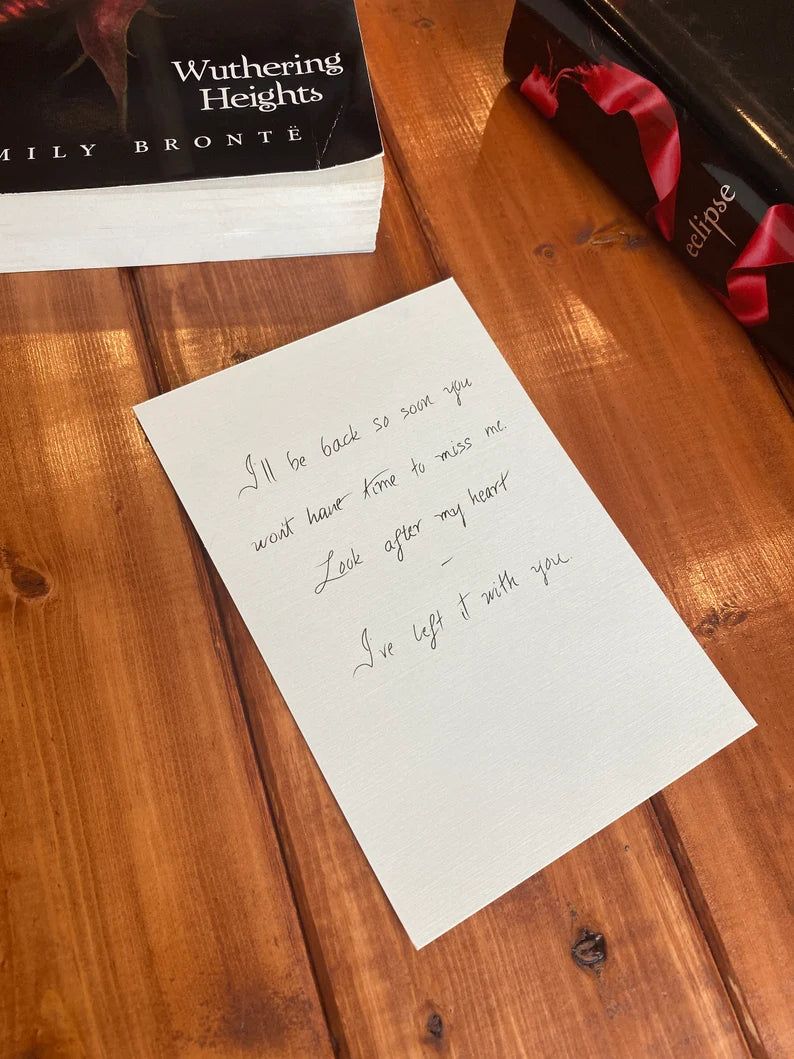 Wuthering
Heights
MILY BRONTË
eclipse
I'll be back so soon you
won't have time to miss me.
Look after my heart
–
I've left it with you.